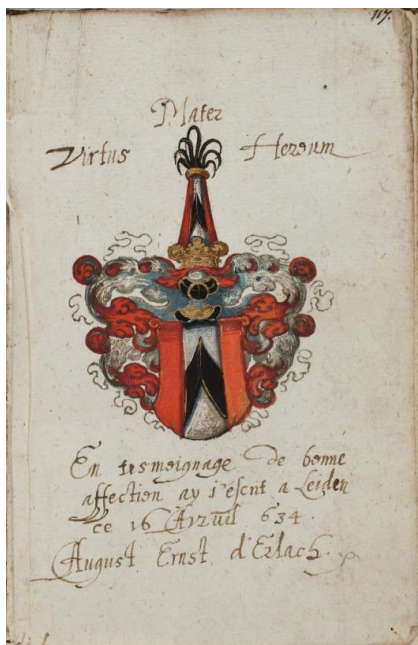 117.
Mater
Virtus Heroum
En tesmeignage de bonne
affection ay j'escrit a Leiden
ce 16 Avril 634.
August Ernst d'Erlach.